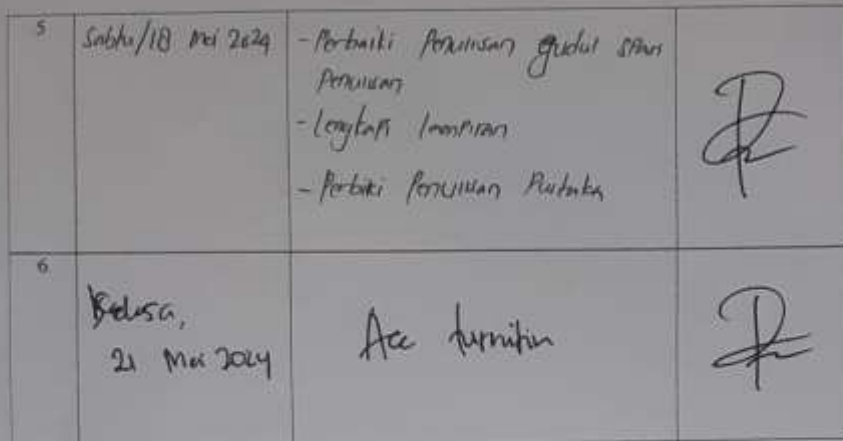 5
Sabtu/18 Mei 2024
- Perbaiki Penulisan Judul
Penulisan
- Lengkapi lampiran
- Perbiki Penulisan Pustaka
6
Selasa,
21 Mei 2024
Acc turnitin